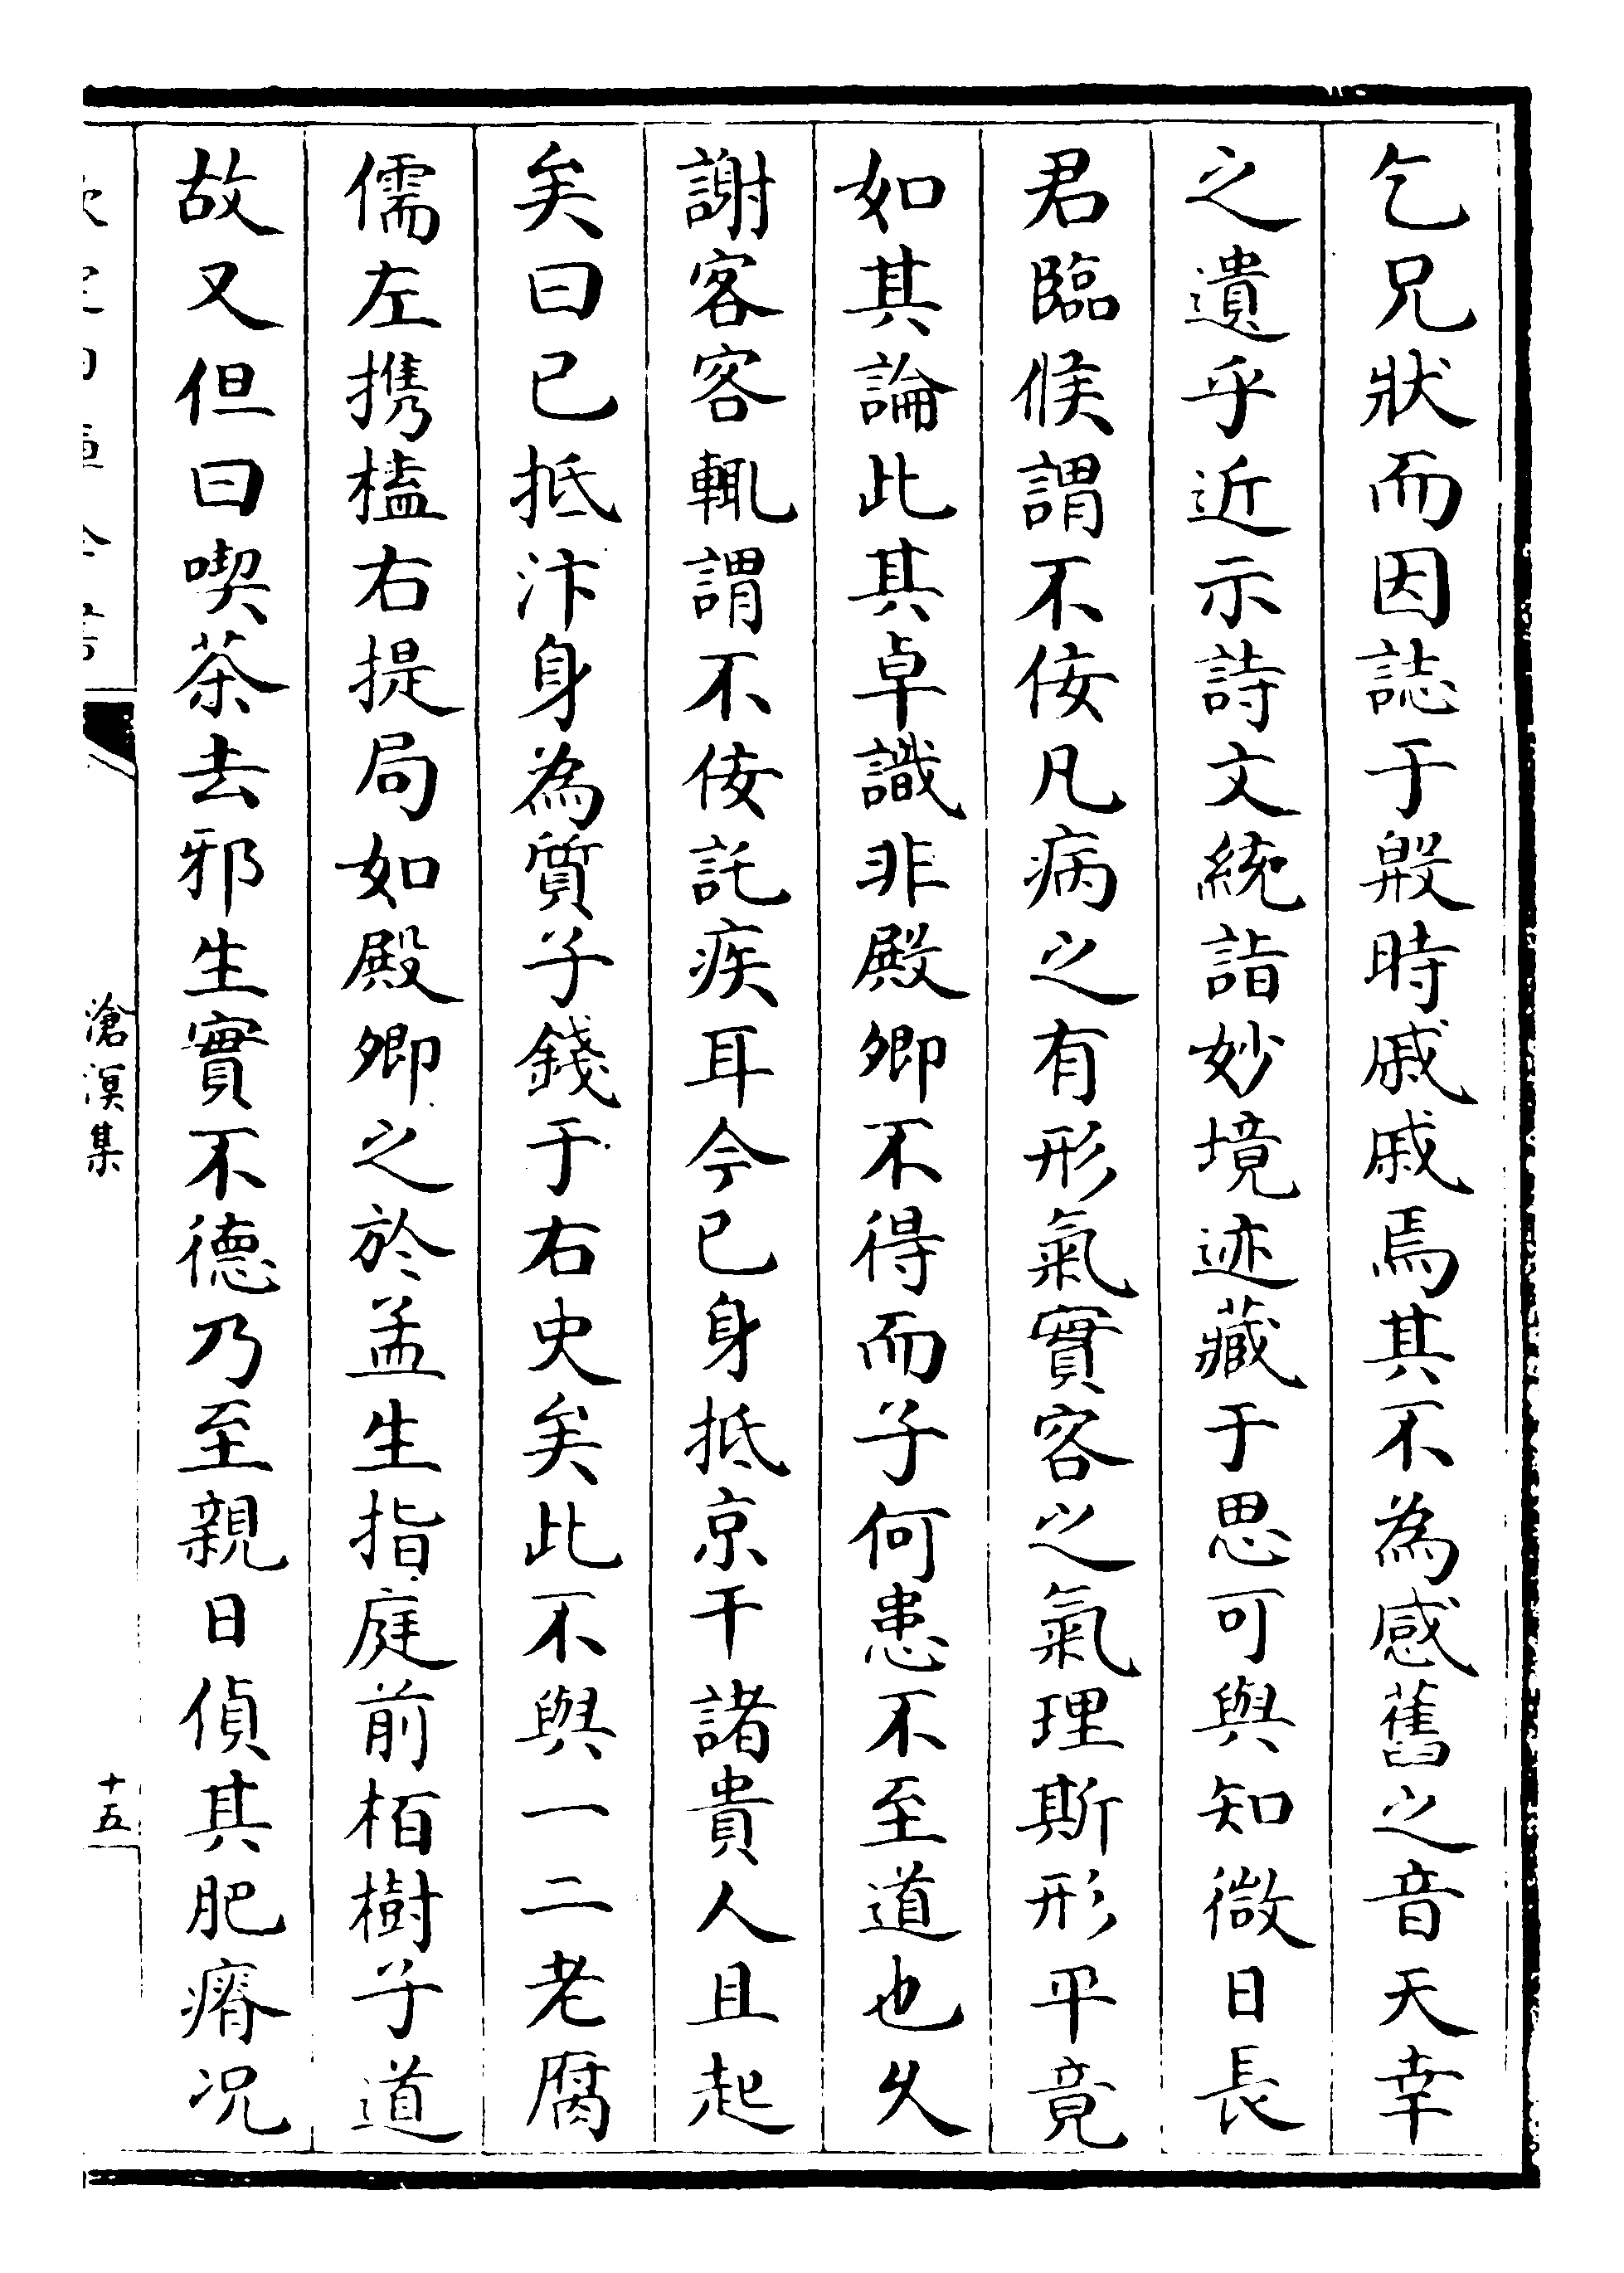 乞兄狀而因誌于殿時戚戚焉其不為感舊之音天幸
之遺乎近示詩文統詣妙境迹藏于思可與知微日長
君臨候謂不佞凡病之有形氣實客之氣理斯形平竟
如其論此其卓識非殿卿不得而子何患不至道也久
謝客客輒謂不佞託疾耳今已身抵京干諸貴人且起
矣曰已抵汴身為質子錢于右史矣此不與一二老腐
儒左携榼右提局如殿卿之於孟生指庭前栢樹子道
故又但曰喫茶去邪生實不德乃至親日偵其肥瘠况
滄溟集
十五